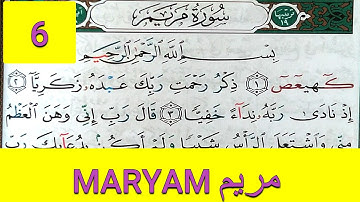 6
سُورَةُ مَرْيَمَ
بِسْمِ اللَّهِ الرَّحْمَٰنِ الرَّحِيمِ
كٓهيعٓصٓ ۝١ ذِكْرُ رَحْمَتِ رَبِّكَ عَبْدَهُۥ زَكَرِيَّآ ۝٢
إِذْ نَادَىٰ رَبَّهُۥ نِدَآءً خَفِيًّا ۝٣ قَالَ رَبِّ إِنِّى وَهَنَ ٱلْعَظْمُ
مِنِّى وَٱشْتَعَلَ ٱلرَّأْسُ شَيْبًا وَلَمْ أَكُنۢ بِدُعَآئِكَ رَبِّ
MARYAM مريم